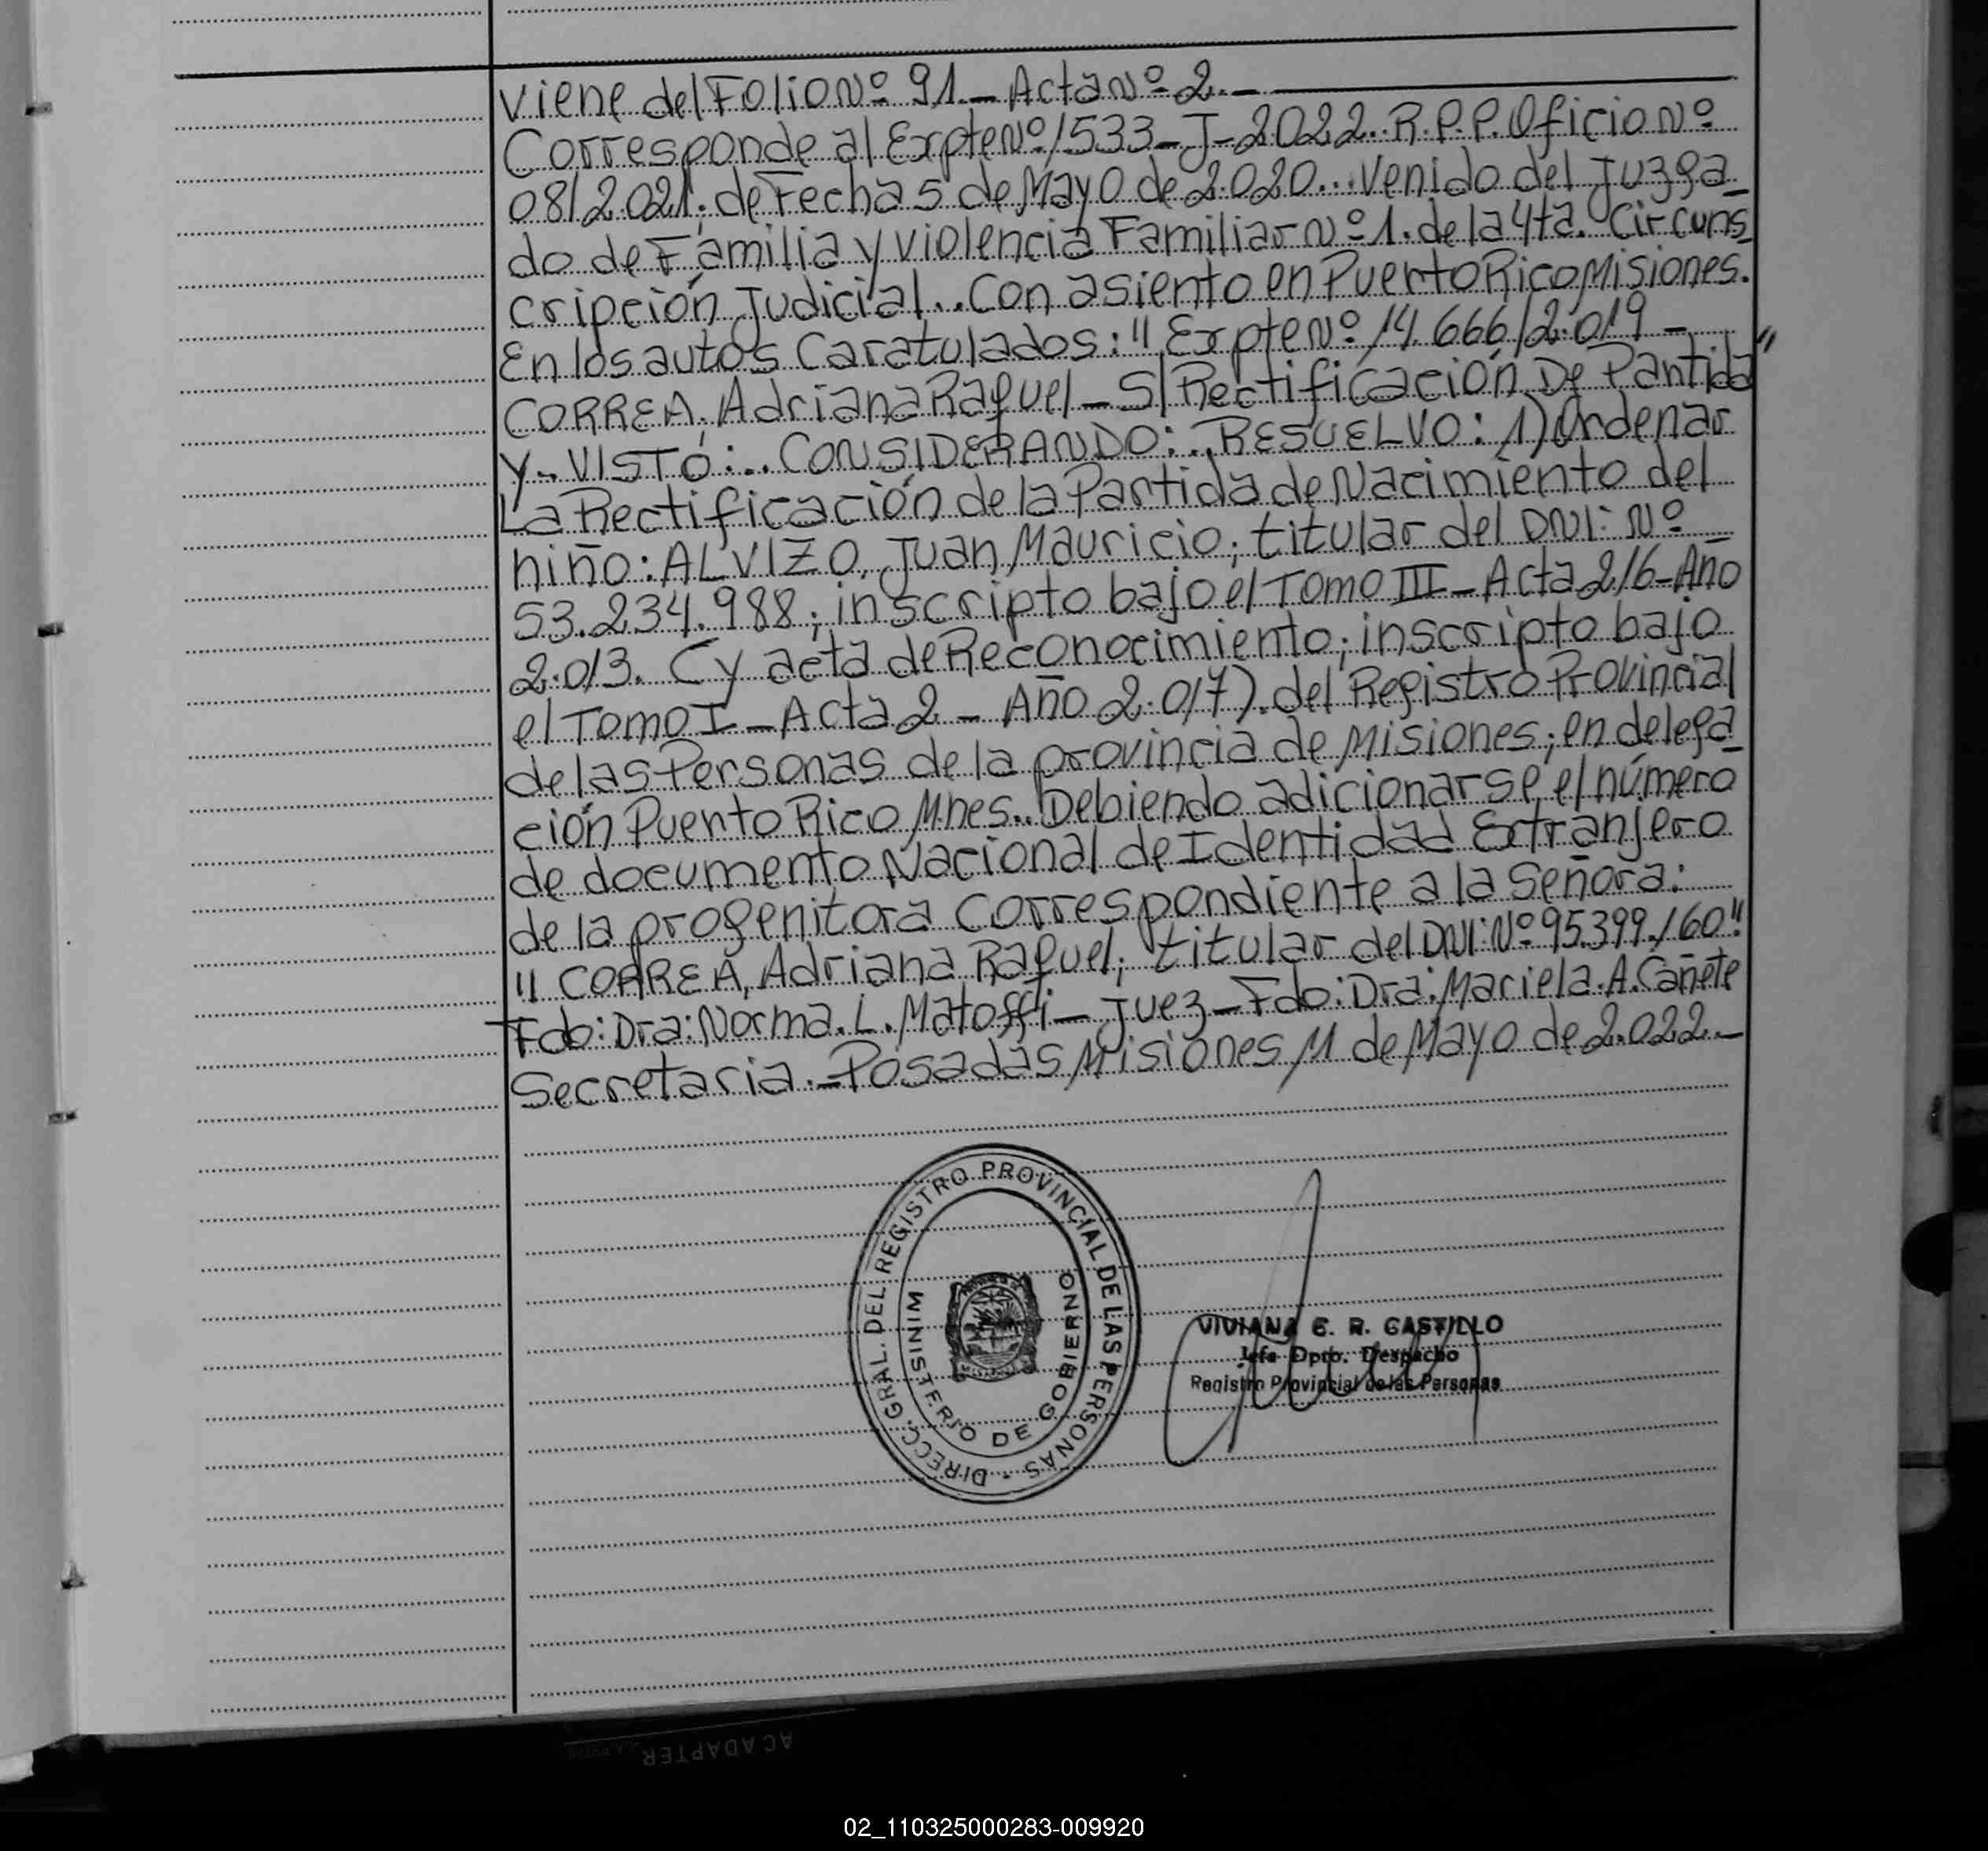 Viene del Folio Nº 91.- Acta Nº 2.-
Corresponde al Expte Nº 1533-J-2.022.. R.P.P. Oficio Nº
08/2.021. de Fecha 5 de Mayo de 2.020... Venido del Juzga_
do de Familia y Violencia Familiar Nº 1. de la 4ta. Circuns_
cripción Judicial... Con asiento en Puerto Rico Misiones.
En los autos Caratulados: "Expte Nº 14.666/2.019 -
CORREA, Adriana Raquel - S/ Rectificación De Partida"
Y.. VISTO:.. CONSIDERANDO:.. RESUELVO: 1) Ordenar
La Rectificación de la Partida de Nacimiento del
niño: ALVIZO, Juan Mauricio; titular del DNI: Nº
53.234.988; inscripto bajo el Tomo III - Acta 216 - Año
2.013. (y acta de Reconocimiento; inscripto bajo
el Tomo I - Acta 2 - Año 2.017). del Registro Provincial
de las Personas de la provincia de Misiones; en delega_
ción Puerto Rico Mnes.. Debiendo adicionarse el número
de documento Nacional de Identidad Extranjero
de la progenitora correspondiente a la Señora:
" CORREA, Adriana Raquel; titular del DNI: Nº 95.399.160"
Fdo: Dra: Norma. L. Matoffi - Juez - Fdo: Dra: Mariela. A. Cañete
Secretaria.- Posadas Misiones 11 de Mayo de 2.022.-
DIRECC. GRAL. DEL REGISTRO PROVINCIAL DE LAS PERSONAS -
MINISTERIO DE GOBIERNO
VIVIANA E. R. CASTILLO
Jefa Dpto. Despacho
Registro Provincial de las Personas
ACADAPTER
02_110325000283-009920